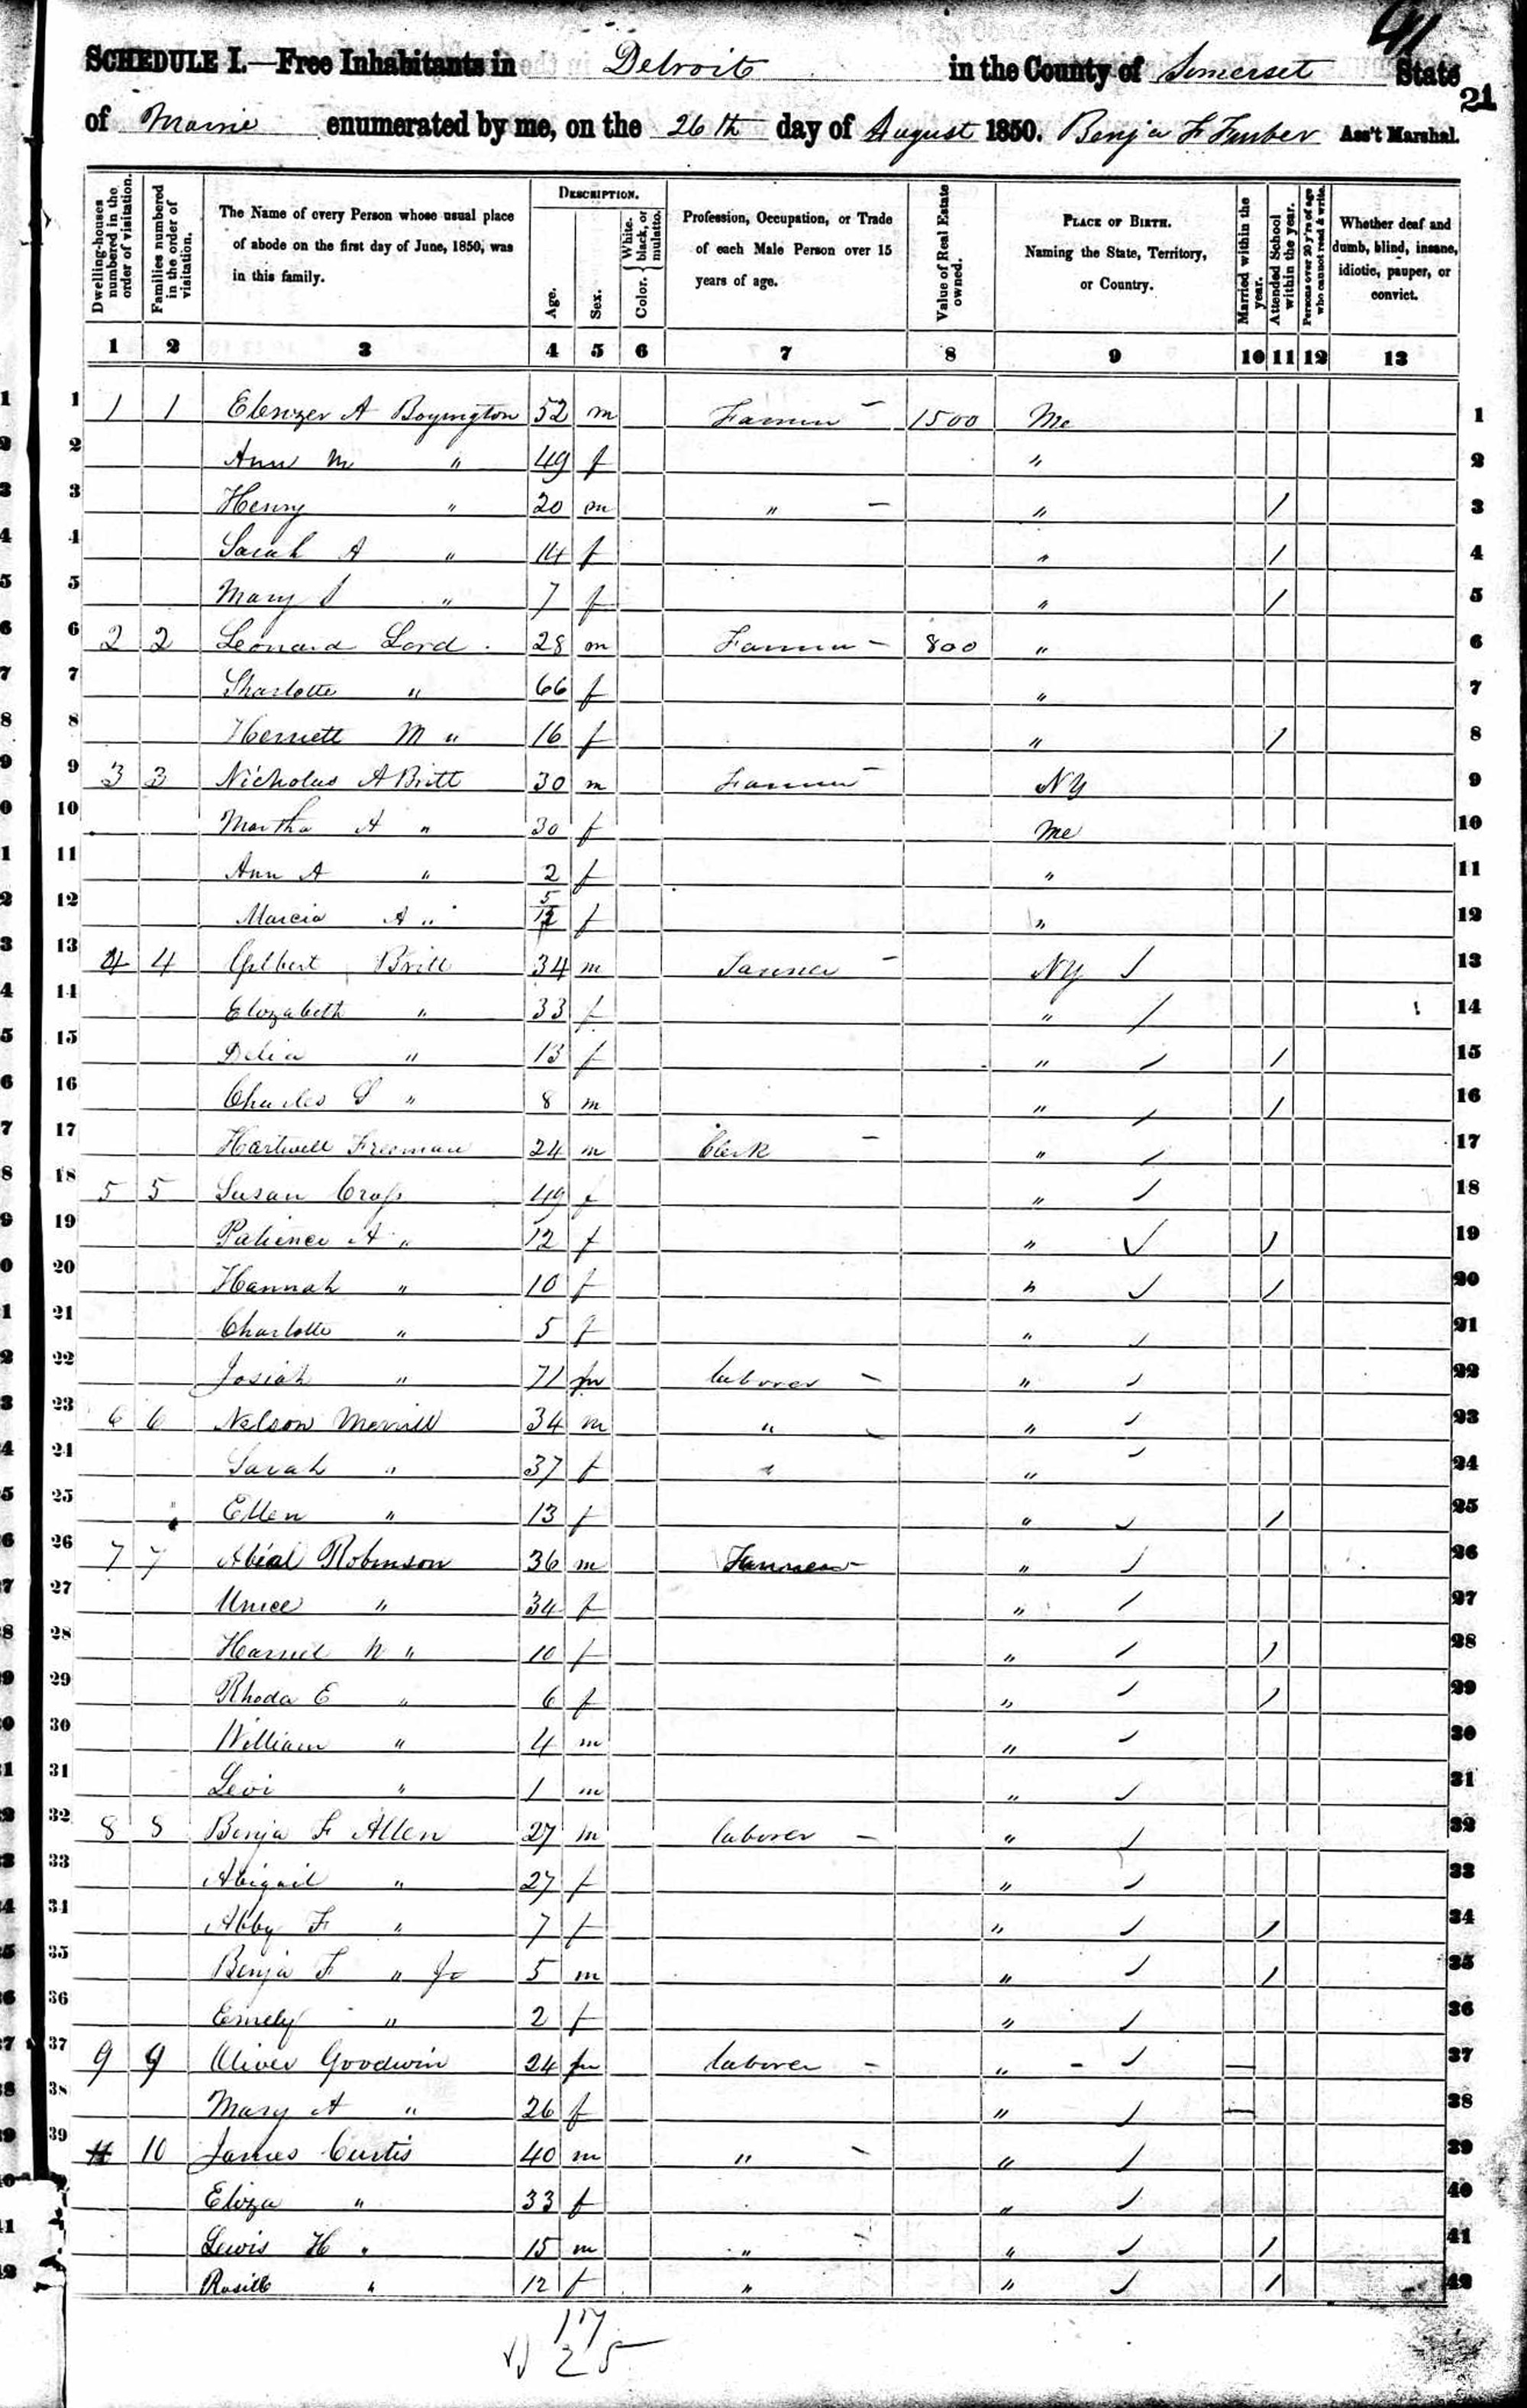 91
SCHEDULE I.—Free Inhabitants in Detroit in the County of Somerset State
21
of Maine enumerated by me, on the 26th day of August 1850. Benja F Ass't Marshal.
Dwelling-houses numbered in the order of visitation.
Families numbered in the order of visitation.
The Name of every Person whose usual place of abode on the first day of June, 1850, was in this family.
DESCRIPTION.
Age.
Sex.
Color. { White, black, or mulatto.
Profession, Occupation, or Trade of each Male Person over 15 years of age.
Value of Real Estate owned.
PLACE OF BIRTH. Naming the State, Territory, or Country.
Married within the year.
Attended School within the year.
Persons over 20 y'rs of age who cannot read & write.
Whether deaf and dumb, blind, insane, idiotic, pauper, or convict.
1 2 3 4 5 6 7 8 9 10 11 12 13
1 1 1 Ebenezer A Boyington 52 m Farmer - 1500 Me 1
2 Ann M " 49 f " 2
3 Henry " 20 m " - " / 3
4 Sarah A " 14 f " / 4
5 Mary S " 7 f " / 5
6 2 2 Leonard Lord 28 m Farmer - 800 " 6
7 Sharlotte " 66 f " 7
8 M " 16 f " / 8
9 3 3 Nicholas A Britt 30 m Farmer - NY 9
10 Martha A " 30 f Me 10
11 Ann A " 2 f " 11
12 Marcia A " 5/12 f " 12
13 4 4 Gilbert Britt 34 m - NY 13
14 Elizabeth " 33 f " 14
15 Delia " 13 f " / 15
16 Charles S " 8 m " / 16
17 Hartwell Freeman 24 m Clerk - " 17
18 5 5 Susan Cross 49 f " 18
19 Patience A " 12 f " / 19
20 Hannah " 10 f " / 20
21 Charlotte " 5 f " 21
22 Josiah " 71 m laborer - " 22
23 6 6 Nelson Merrill 34 m " - " 23
24 Sarah " 37 f " " 24
25 Ellen " 13 f " / 25
26 7 7 Abial Robinson 36 m - " 26
27 Unice " 34 f " 27
28 Harriet N " 10 f " / 28
29 Rhoda E " 6 f " / 29
30 William " 4 m " 30
31 Levi " 1 m " 31
32 8 8 Benja F Allen 27 m laborer - " 32
33 Abigail " 27 f " 33
34 Abby F " 7 f " / 34
35 Benja F " Jr 5 m " / 35
36 Emely " 2 f " 36
37 9 9 Oliver Goodwin 24 m laborer - " - 37
38 Mary A " 26 f " - 38
39 10 James Curtis 40 m " - " 39
40 Eliza " 33 f " 40
41 Lewis H " 15 m " - " / 41
42 " 12 f " " / 42
17
25